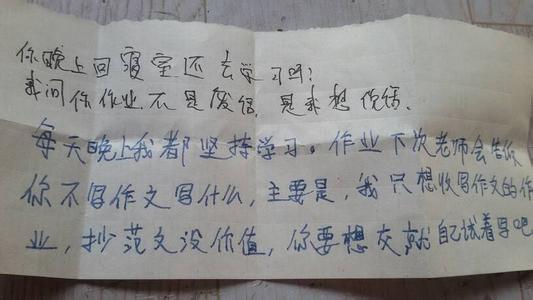 你晚上回寝室还去学习吗?
我问你作业不是废话,是我想你猜。
每天晚上我都坚持学习。作业下次老师会告诉
你不写作文写什么,主要是,我只想收写作文的作
业,抄范文没价值,你要想交就自己试着写吧